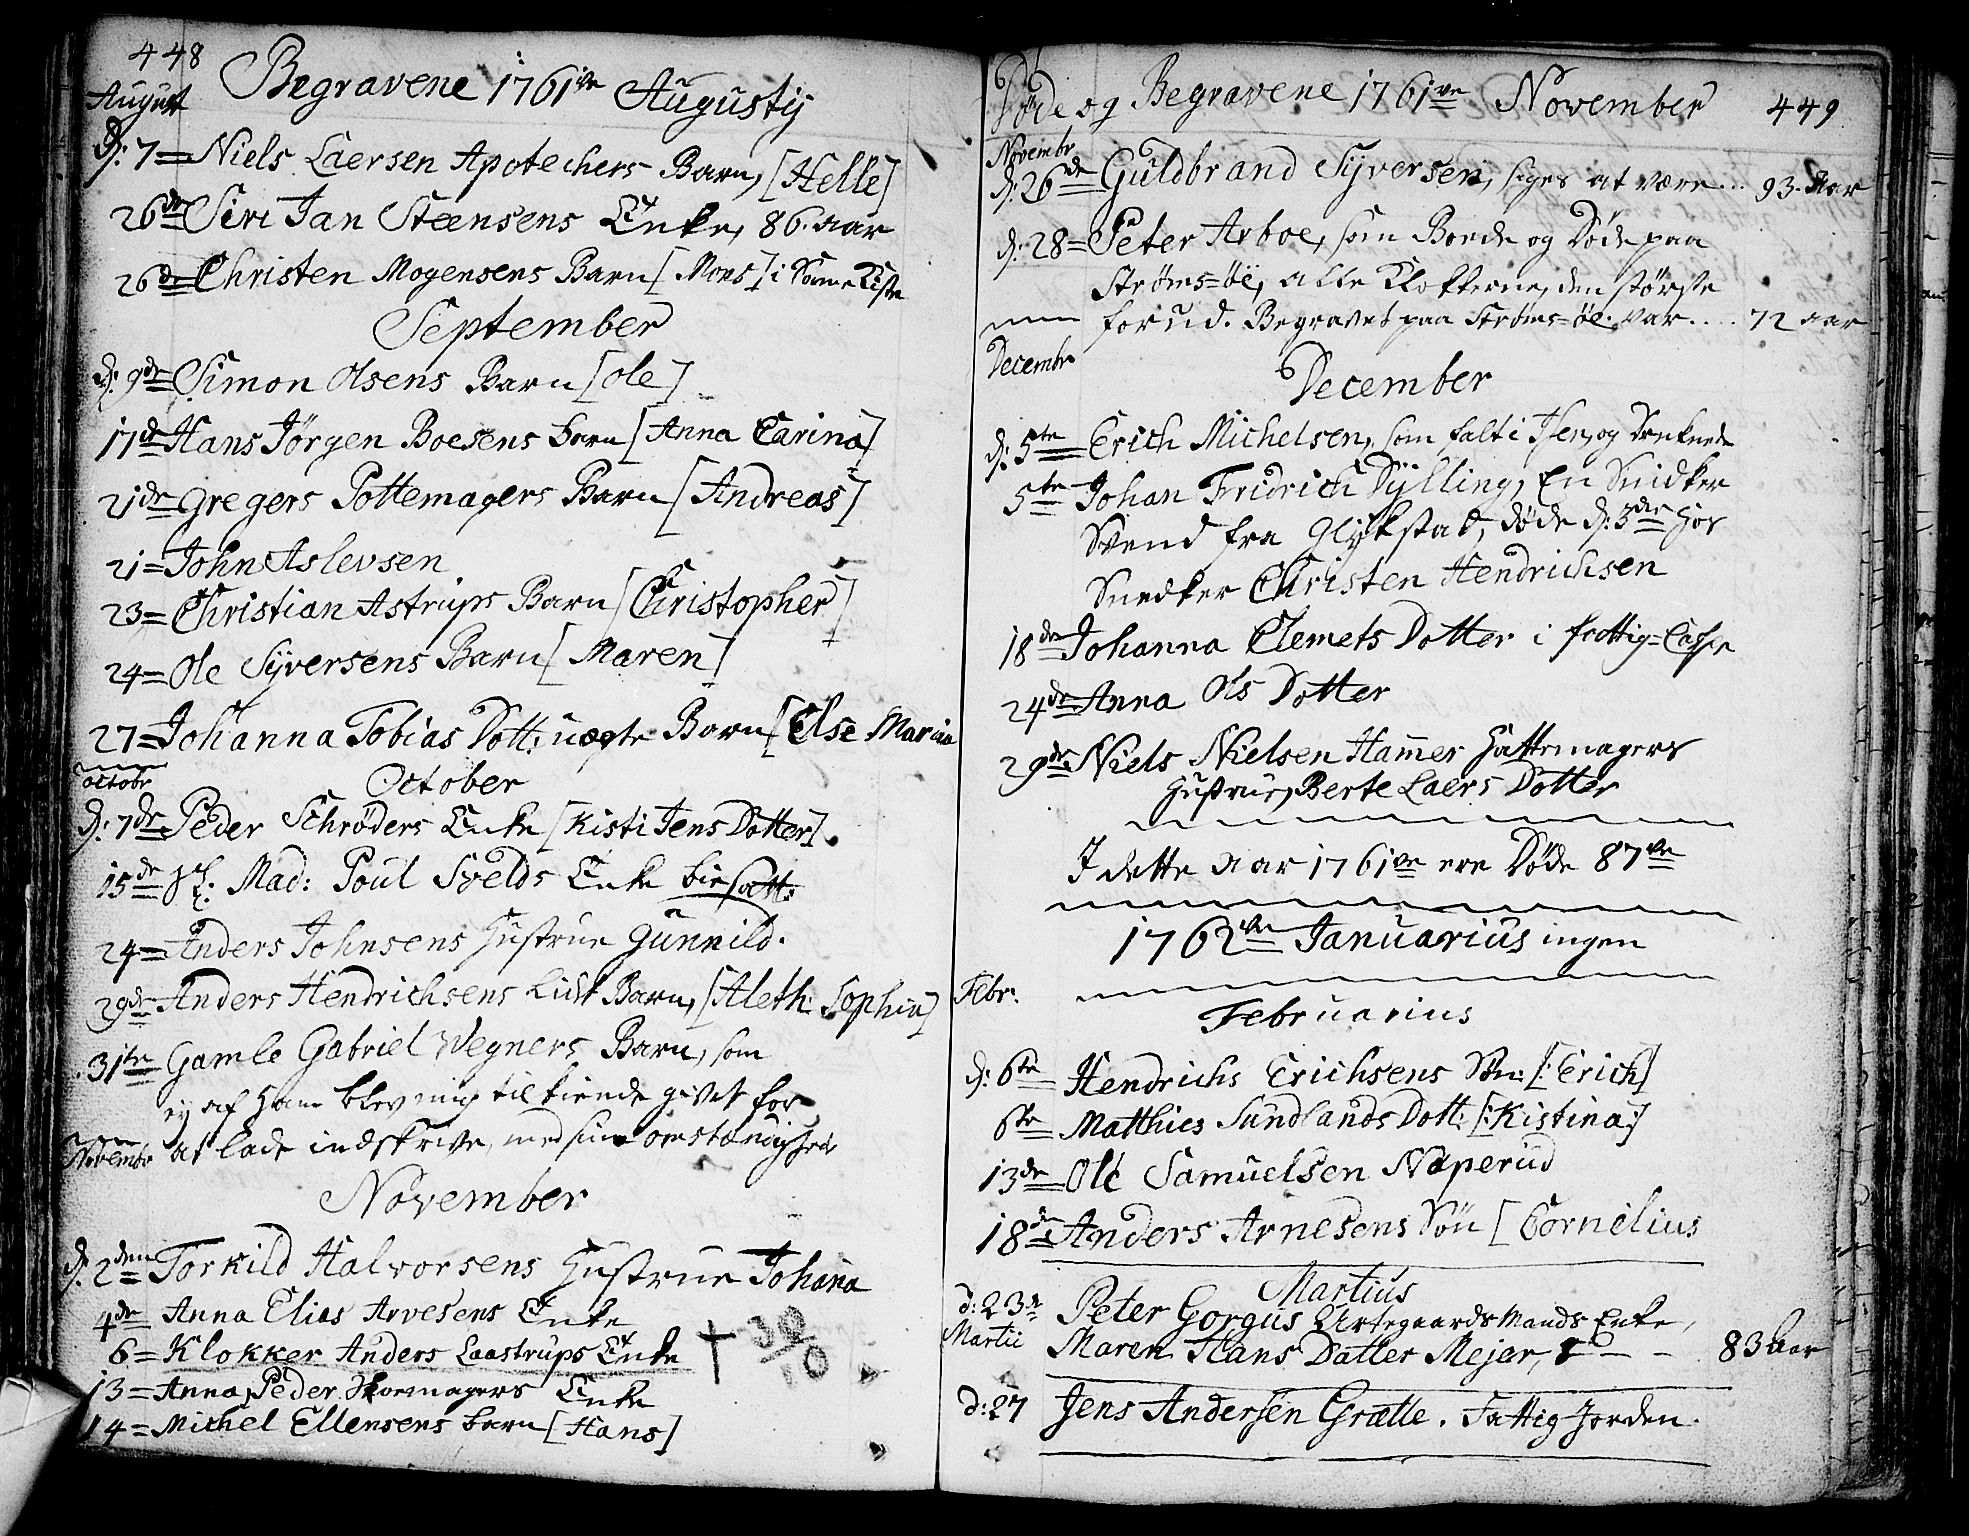 448
Begravene 1761ve Augustij
August
d: 7 = Niels Laersen Apotechers Barn, [Helle]
26de Siri Jan Steensens Enke, 86. aar
26de Christen Mogensens Barn [Mons] i Samme Kiste
September
d: 9de Simon Olsens Barn [Ole]
17de Hans Jörgen Boesens barn [Anna Carina]
21de Gregers Pottemagers Barn [Andreas]
21 = John Aslevsen
23 = Christian Astrups Barn [Christopher]
24 = Ole Syversens Barn [Maren]
27 = Johanna Tobias Dott: uægte Barn [Else Maria
Octobr
October
d: 7de Peder Schrøders Enke [Kisti Jens Dotter].
15de Sl. Mad: Poul Svelds Enke biesatt:
24 = Anders Johnsens Hustrue Gunnild.
29de Anders Hendrichsens Lidt Barn, [Aleth: Sophia]
31te Gamle Gabriel Wegners Barn, som
ej af Ham blev mig tilkiende givet for
at lade indskrive, med sine omstændigheder
Novembr
November
d: 2den Torkild Halvorsens Hustrue Johana
4de Anna Elias Arvesens Enke
6 = Klokker Anders Laastrups Enke
13 = Anna Peder Skoemagers Enke
14 = Michel Ellensens barn [Hans]
Døde og Begravene 1761ve November 449
Novembr
d: 26de Guldbrand Syversen, siges at være... 93. Aar
d: 28 = Peter Arboe, som Boede og Døde paa
Strøms=öe, alle Klokkerne, den største
forud. Begravet paa Strøms=öe. var.... 72 aar
Decembr
December
d: 5te Erich Michelsen, som falt i Isen, og Druknede
5te Johan Fridrich Dylling, En Snidker
Svend fra Glykstad, døde d: 3die hos
Snedker Christen Hendrichsen
18de Johanna Clemets Dotter i fattig=Casse
24de Anna Ols Dotter
29de Niels Nielsen Hamer Hattemagers
Hustrue, Berte Laers Dotter
I dette aar 1761ve ere Døde 87ve
1762ve Januarius ingen
Febr:
Februarius
d: 6te Hendrichs Erichsens Sön: [:Erich]
6te Matthies Sundlands Dott: [:Kistina:]
13de Ole Samuelsen Næperud
18de Anders Arnesens Søn [Cornelius
Martius
d: 23de Peter Gorgus Urtegaards Mands Enke,
Martii Maren Hans Datter Mejer, - - 83 Aar
d: 27 Jens Andersen Grætte. Fattig Jorden.